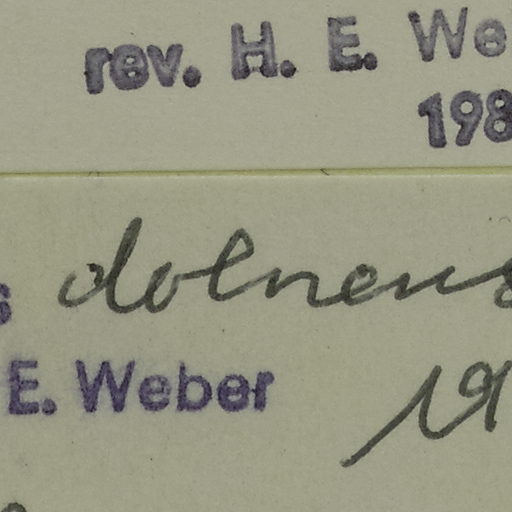 rev. H. E. We
198
s dolneus
E. Weber 19